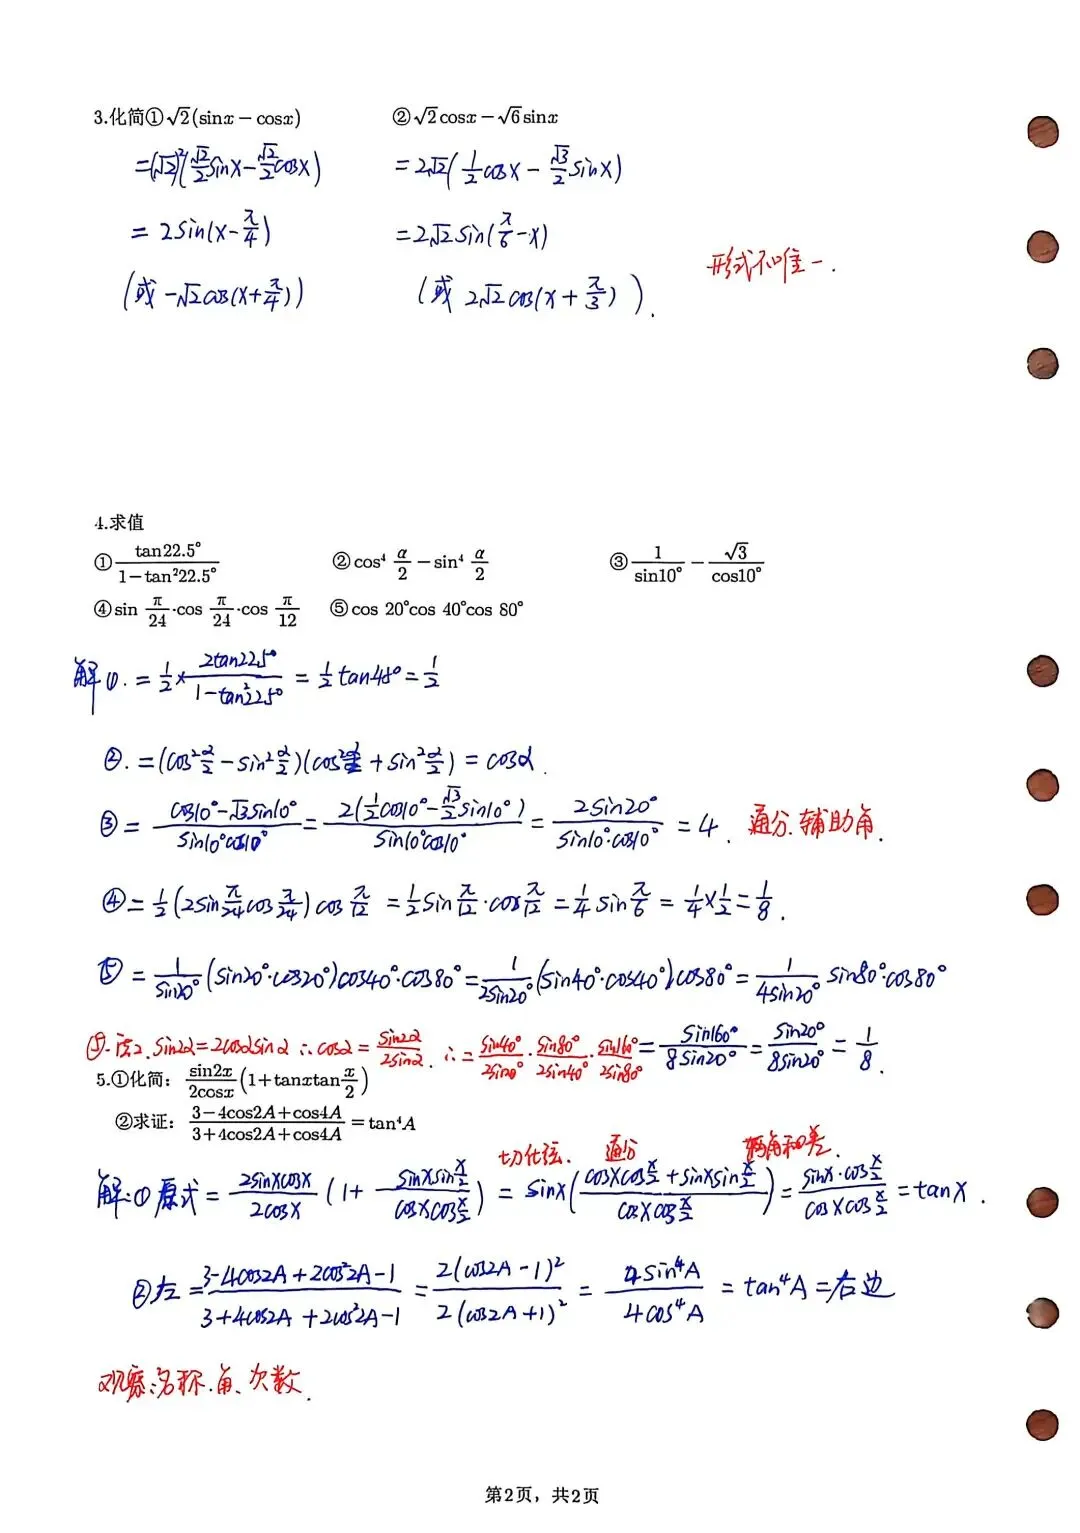 3.化简①√2(sinx－cosx) ②√2cosx－√6sinx
=(√2)²(√2/2 sinx－√2/2 cosx) =2√2(1/2 cosx－√3/2 sinx)
= 2sin(x－π/4) =2√2 sin(π/6－x)
(或 －√2cos(x+π/4)) (或 2√2cos(x+π/3)).
形式不唯一.
4.求值
①tan22.5°/(1－tan²22.5°) ②cos⁴ α/2－sin⁴ α/2 ③1/sin10°－√3/cos10°
④sin π/24·cos π/24·cos π/12 ⑤cos 20°cos 40°cos 80°
解①. = 1/2×2tan22.5°/(1－tan²22.5°) = 1/2 tan45°= 1/2
②. =(cos²α/2－sin²α/2)(cos²α/2+sin²α/2) = cosα.
③ = (cos10°－√3sin10°)/(sin10°cos10°) = 2(1/2cos10°－√3/2 sin10°)/(sin10°cos10°) = 2sin20°/(sin10°·cos10°) = 4. 通分.辅助角.
④= 1/2(2sinπ/24cosπ/24)cosπ/12 = 1/2sinπ/12·cosπ/12 = 1/4 sinπ/6 = 1/4×1/2 = 1/8.
⑤ = 1/sin20°(sin20°·cos20°)cos40°·cos80° = 1/2sin20°(sin40°·cos40°)cos80° = 1/4sin20° sin80°·cos80°
⑤.法2. sin2α=2cosαsinα ∴cosα= sin2α/2sinα. ∴= sin40°/2sin20°·sin80°/2sin40°·sin160°/2sin80° = sin160°/8sin20° = sin20°/8sin20° = 1/8.
5.①化简：sin2x/2cosx(1+tanxtan x/2)
②求证：(3－4cos2A+cos4A)/(3+4cos2A+cos4A)=tan⁴A
切化弦. 通分 两角和差.
解:①原式= 2sinxcosx/2cosx (1+ sinxsinx/2/cosxcosx/2) = sinx((cosxcosx/2+sinxsinx/2)/cosxcosx/2) = sinx·cosx/2/cosxcosx/2 = tanx.
②左= (3－4cos2A+2cos²2A－1)/(3+4cos2A+2cos²2A－1) = 2(cos2A－1)²/2(cos2A+1)² = 4sin⁴A/4cos⁴A = tan⁴A =右边
观察:名称.角、次数.
第2页，共2页